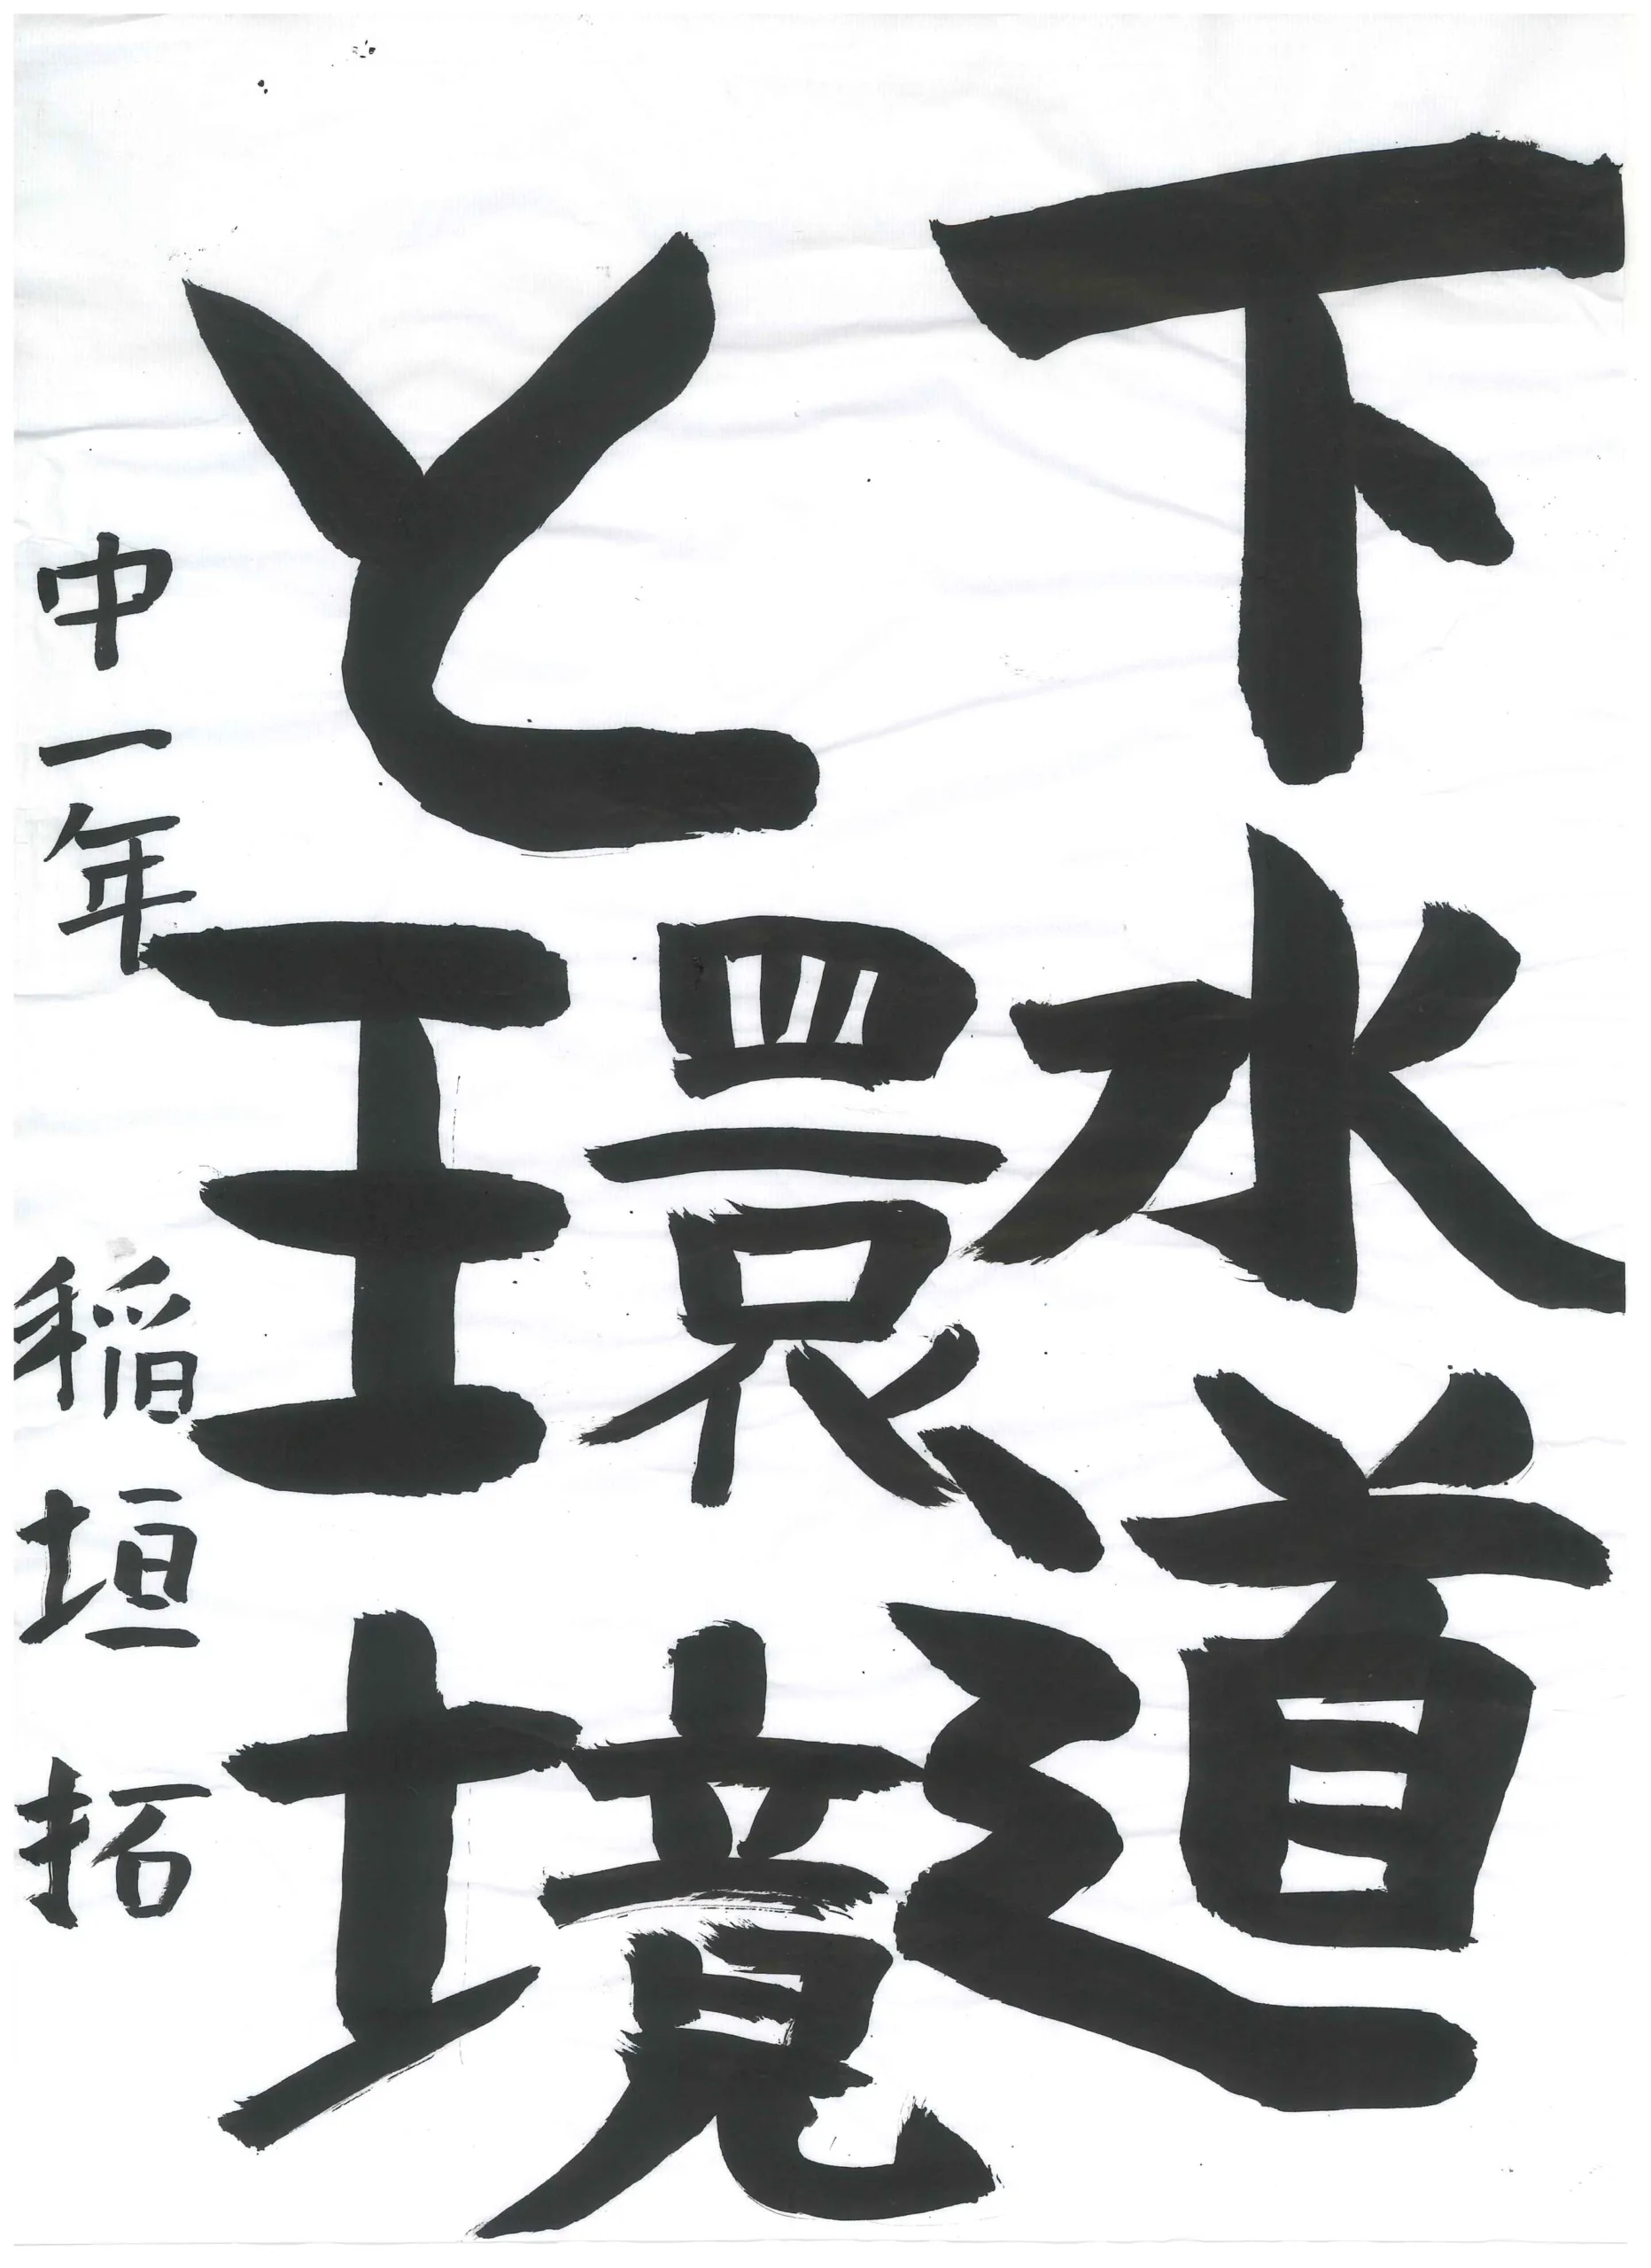 下水道
と環境
中一年 稲垣拓